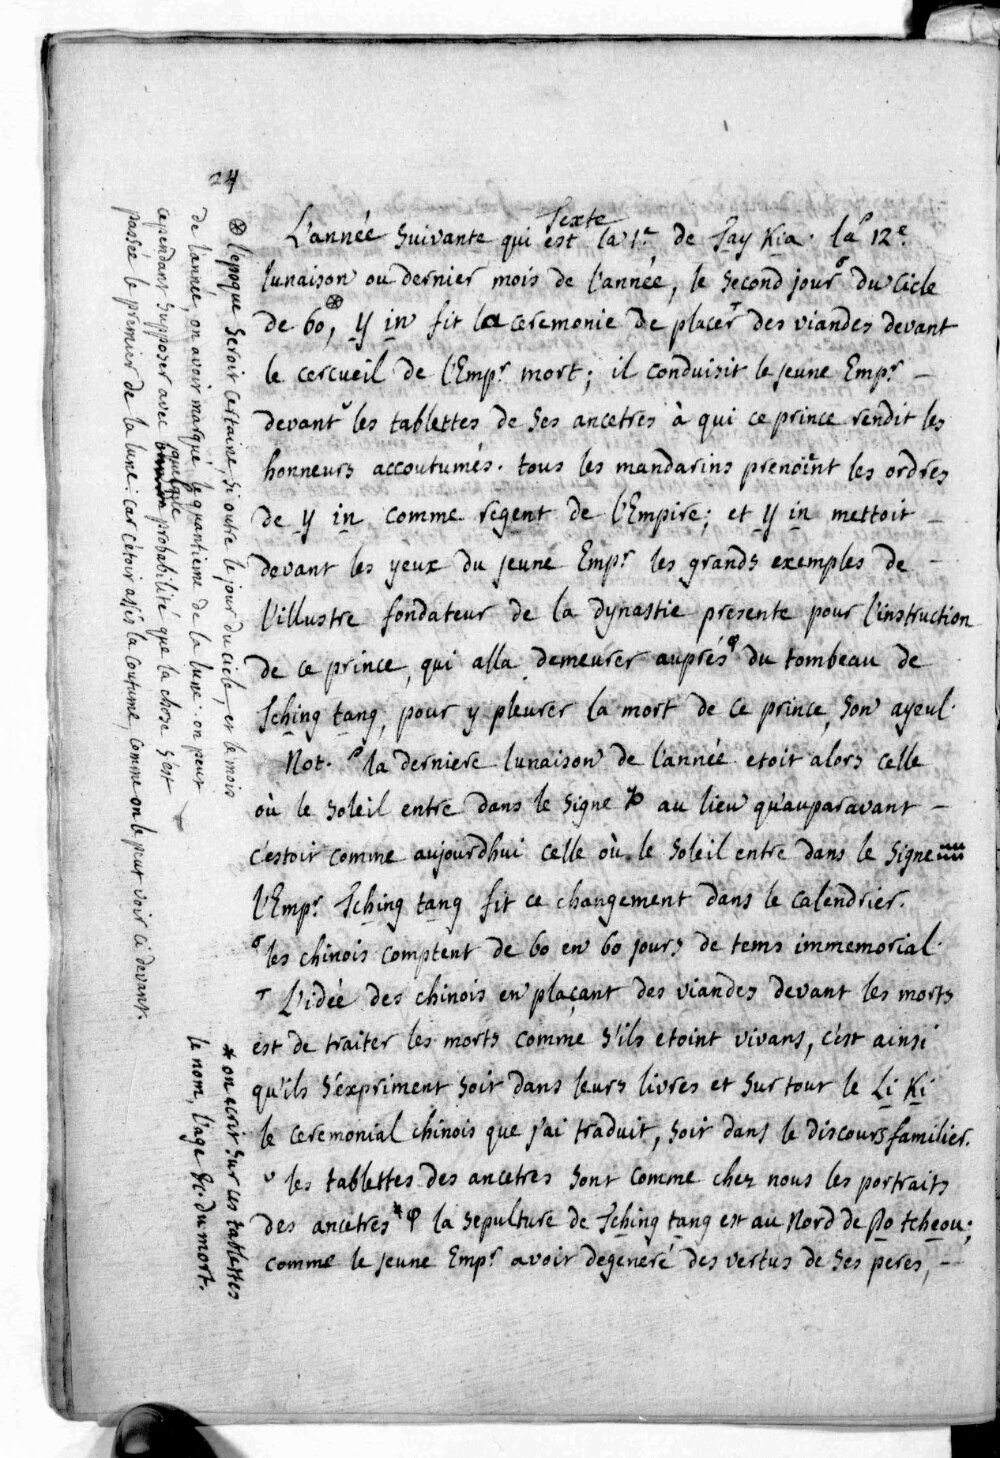 24
Texte
L'année suivante qui est la 1.e de Tay Kia. la ρ 12.e
lunaison ou dernier mois de l'année, le second jour σ du cicle
de 60 ⊛, y in fit la ceremonie de placer τ des viandes devant
le cercueil de l'Emp.r mort; il conduisit le jeune Emp.r —
devant υ les tablettes de ses ancetres à qui ce prince rendit les
honneurs accoutumés. tous les mandarins prenoint les ordres
de y in comme regent de l'Empire; et y in mettoit —
devant les yeux du jeune Emp.r les grands exemples de —
l'illustre fondateur de la dynastie presente pour l'instruction
de ce prince, qui alla demeurer auprés φ du tombeau de
Tching tang, pour y pleurer la mort de ce prince, son ayeul.
Not. ρ la derniere lunaison de l'année etoit alors celle
où le soleil entre dans le signe ♑ au lieu qu'auparavant —
c'estoit comme aujourdhui celle où le soleil entre dans le signe ♒
l'Emp.r Tching tang fit ce changement dans le calendrier.
σ les chinois comptent de 60 en 60 jours de tems immemorial.
τ L'idée des chinois en plaçant des viandes devant les morts
est de traiter les morts comme s'ils etoint vivans, c'est ainsi
qu'ils s'expriment soit dans leurs livres et sur tout le Li Ki
le ceremonial chinois que j'ai traduit, soit dans le discours familier.
υ les tablettes des ancetres sont comme chez nous les portraits
des ancetres * φ la sepulture de Tching tang est au Nord de Po tcheou;
comme le jeune Emp.r avoit degeneré des vertus de ses peres, —
⊛ l'epoque seroit certaine, si outre le jour du cicle, et le mois
de l'année, on avoit marqué le quantieme de la lune. on peut
cependant supposer avec quelque probabilité que la chose s'est
passée le premier de la lune: car c'étoit assés la coutume, comme on le peut voir ci devant.
* on ecrit sur ces tablettes
le nom, l'age &c. du mort.